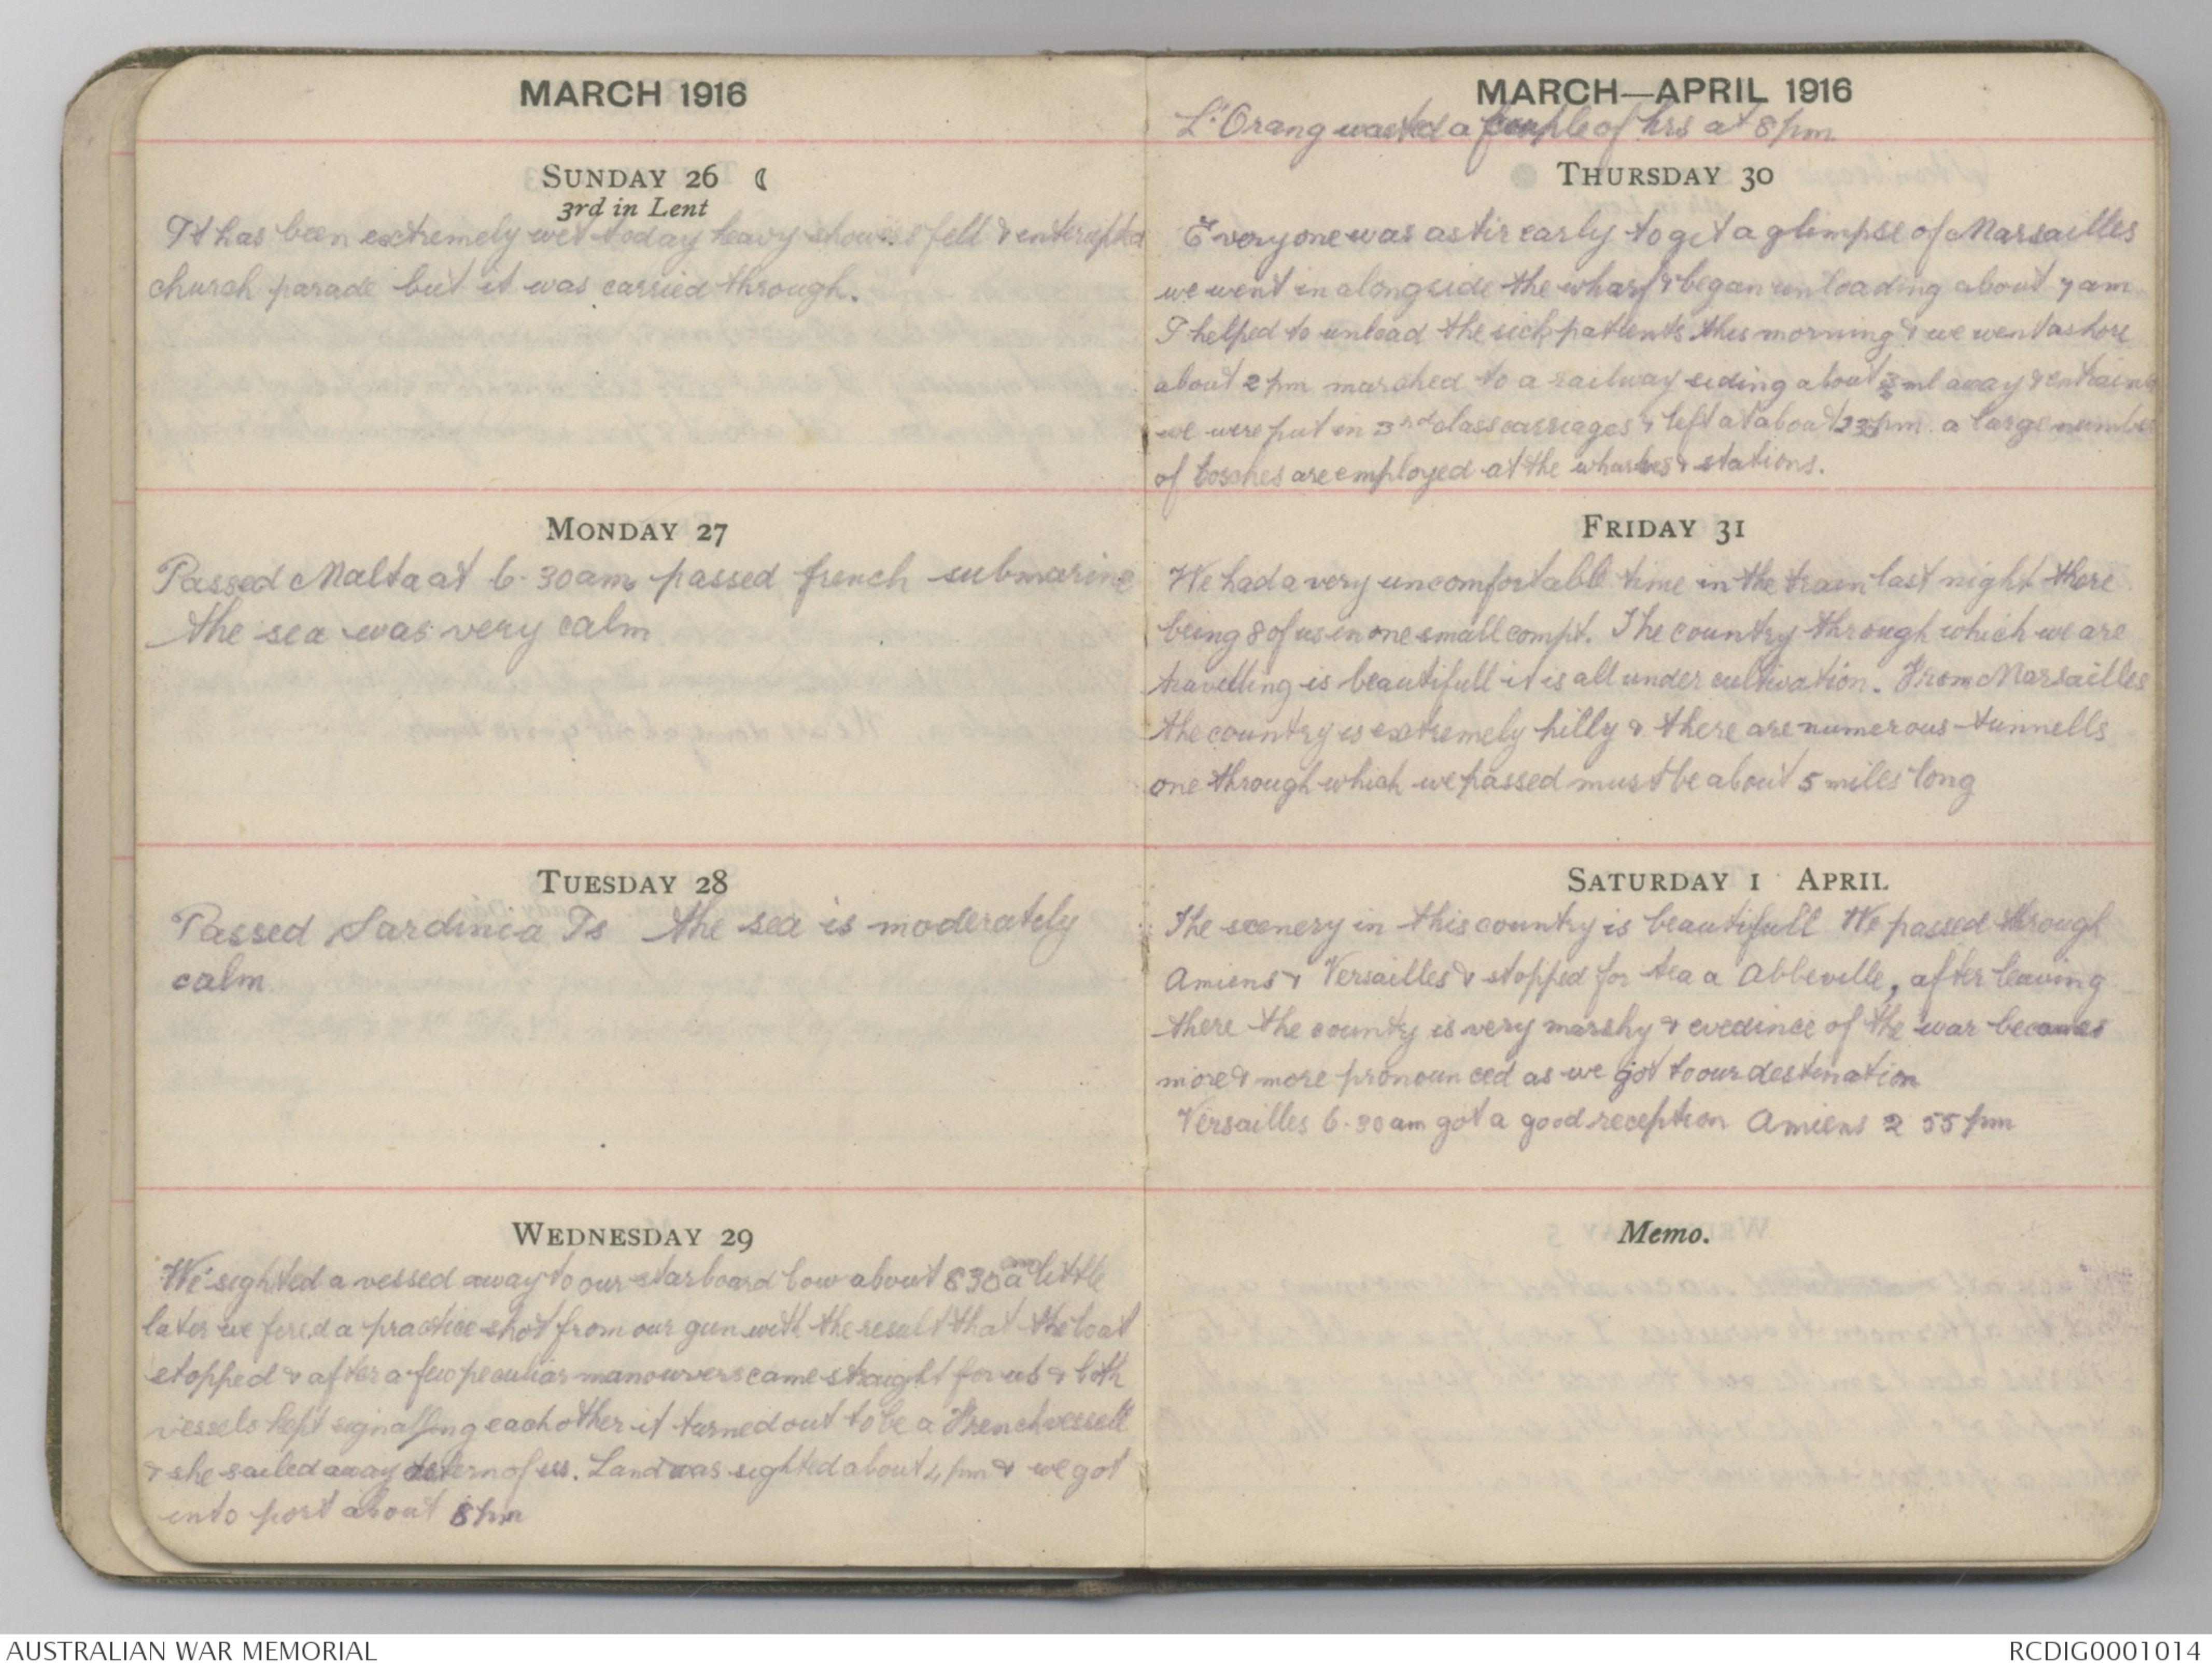 MARCH 1916
SUNDAY 26 ☾
3rd in Lent
It has been extremely wet today heavy showers fell & enterupted
church parade but it was carried through.
MONDAY 27
Passed Malta at 6.30am passed french submarine
the sea was very calm
TUESDAY 28
Passed Sardinia Is the sea is moderately
calm
WEDNESDAY 29
We sighted a vessed away to our starboard bow about 830am a little
later we fired a practice shot from our gun with the result that the boat
stopped & after a few peculiar manouvers came straight for us & both
vessels kept signalling each other it turned out to be a French vessell
& she sailed away astern of us. Land was sighted about 4 pm & we got
into port about 8 pm
MARCH—APRIL 1916
L'Orang a couple of hrs at 8 pm
THURSDAY 30
Everyone was astir early to get a glimpse of Marsailles
we went in alongside the wharf & began unloading about 7 am
I helped to unload the sick patients this morning & we went ashore
about 2 pm marched to a railway siding about ml away & entrained
we were put in 3rd class carriages & left at about pm a large number
of bosches are employed at the wharves & stations.
FRIDAY 31
We had a very uncomfortable time in the train last night there
being 8 of us in one small compt. The country through which we are
travelling is beautifull it is all under cultivation. From Marsailles
the country is extremely hilly & there are numerous tunnells
one through which we passed must be about 5 miles long
SATURDAY 1 APRIL
The scenery in this country is beautifull We passed through
Amiens & Versailles & stopped for tea a Abbeville, after leaving
there the county is very marshy & evedince of the war becomes
more & more pronounced as we got to our destination
Versailles 6.30 am got a good reception Amiens 2 55 pm
Memo.
AUSTRALIAN WAR MEMORIAL
RCDIG0001014